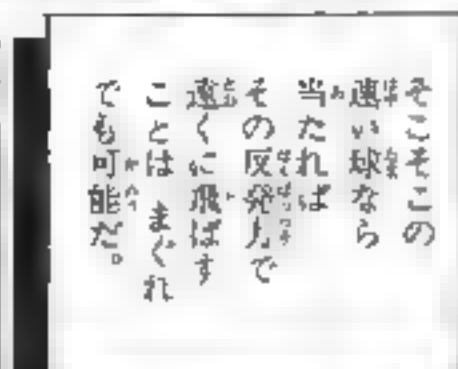 そこそこの
速い球なら
当たれば
その反発力で
遠くに飛ばす
ことは まぐれ
でも可能だ。